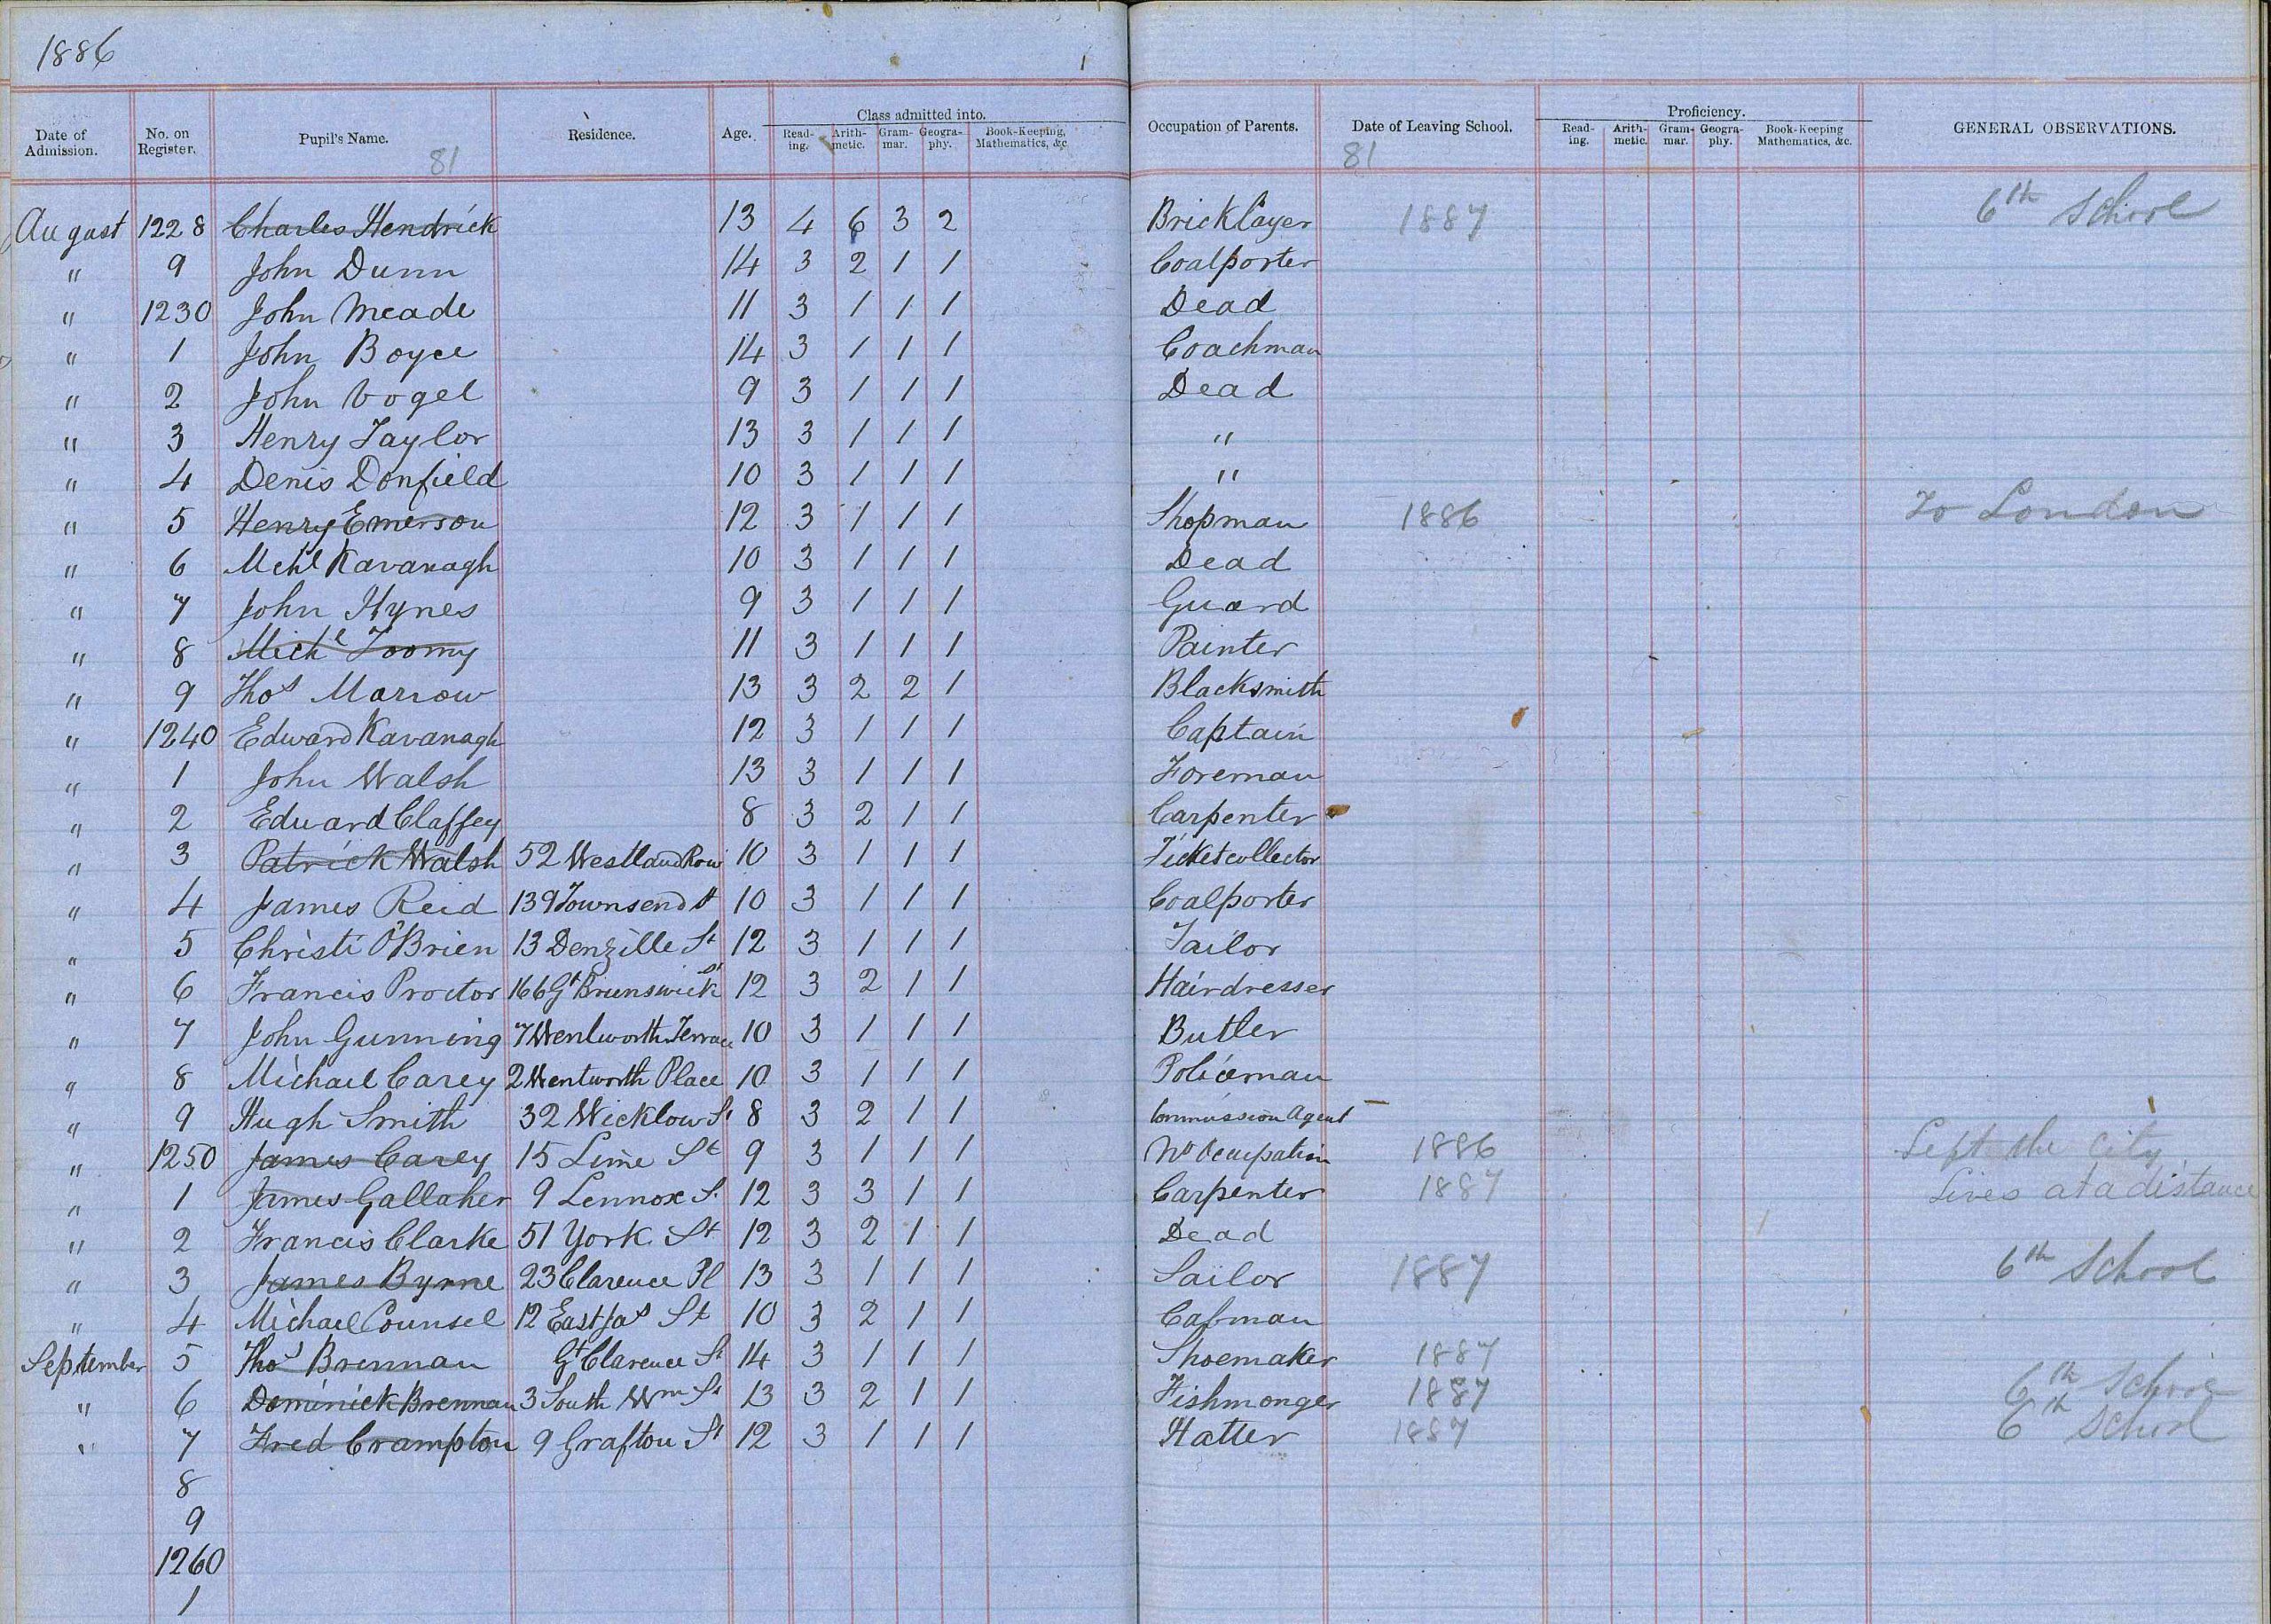 1886
Date of Admission. No. on Register. Pupil's Name. Residence. Age. Class admitted into. Read-ing. Arith-metic. Gram-mar. Geogra-phy. Book-Keeping, Mathematics, &c. Occupation of Parents. Date of Leaving School. Proficiency. Read-ing. Arith-metic. Gram-mar. Geogra-phy. Book-Keeping Mathematics, &c. GENERAL OBSERVATIONS.
81 81
August 1228 Charles Hendrick 13 4 6 3 2 Bricklayer 1887 6th School
" 9 John Dunn 14 3 2 1 1 Coalporter
" 1230 John Meade 11 3 1 1 1 Dead
" 1 John Boyce 14 3 1 1 1 Coachman
" 2 John Vogel 9 3 1 1 1 Dead
" 3 Henry Taylor 13 3 1 1 1 "
" 4 Denis Donfield 10 3 1 1 1 "
" 5 Henry Emerson 12 3 1 1 1 Shopman 1886 To London
" 6 Michl Kavanagh 10 3 1 1 1 Dead
" 7 John Hynes 9 3 1 1 1 Guard
" 8 Michl Toomy 11 3 1 1 1 Painter
" 9 Thos Marrow 13 3 2 2 1 Blacksmith
" 1240 Edward Kavanagh 12 3 1 1 1 Captain
" 1 John Walsh 13 3 1 1 1 Foreman
" 2 Edward Claffey 8 3 2 1 1 Carpenter
" 3 Patrick Walsh 52 Westland Row 10 3 1 1 1 Ticketcollector
" 4 James Reid 139 Townsend St 10 3 1 1 1 Coalporter
" 5 Christi O'Brien 13 Denzille St 12 3 1 1 1 Tailor
" 6 Francis Proctor 166 Gt Brunswick St 12 3 2 1 1 Hairdresser
" 7 John Gunning 7 Wentworth Terrace 10 3 1 1 1 Butler
" 8 Michael Carey 2 Wentworth Place 10 3 1 1 1 Policeman
" 9 Hugh Smith 32 Wicklow St 8 3 2 1 1 Commission Agent
" 1250 James Carey 15 Lime St 9 3 1 1 1 No Occupation 1886 Left the City
" 1 James Gallaher 9 Lennox St 12 3 3 1 1 Carpenter 1887 Lives at a distance
" 2 Francis Clarke 51 York St 12 3 2 1 1 Dead
" 3 James Byrne 23 Clarence Pl 13 3 1 1 1 Sailor 1887 6th School
" 4 Michael Counsel 12 East Jas St 10 3 2 1 1 Cabman
September 5 Thos Brennan Gt Clarence St 14 3 1 1 1 Shoemaker 1887
" 6 Dominick Brennan 3 South Wm St 13 3 2 1 1 Fishmonger 1887 6th School
" 7 Fred Crampton 9 Grafton St 12 3 1 1 1 Hatter 1887 6th School
8
9
1260
1